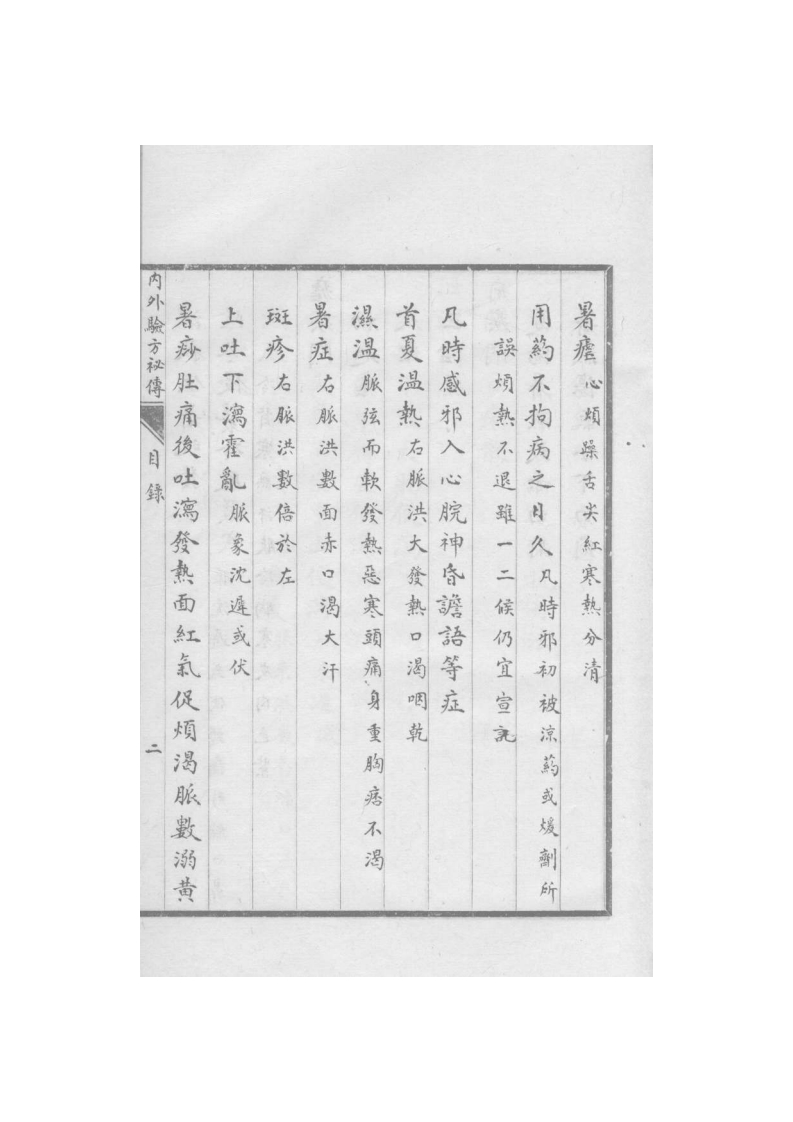 暑瘧心煩躁舌尖紅寒熱分清
用葯不拘病之日久凡時邪初被涼葯或煖劑所
誤煩熱不退雖一二候仍宜宣託
凡時感邪入心脘神昏譫語等症
首夏溫熱右脈洪大發熱口渴咽乾
濕溫脈弦而軟發熱惡寒頭痛身重胸痞不渴
暑症右脈洪數面赤口渴大汗
斑疹右脈洪數倍於左
上吐下瀉霍亂脈象沈遲或伏
暑痧肚痛後吐瀉發熱面紅氣促煩渴脈數溺黃
內外驗方祕傳 目錄 二